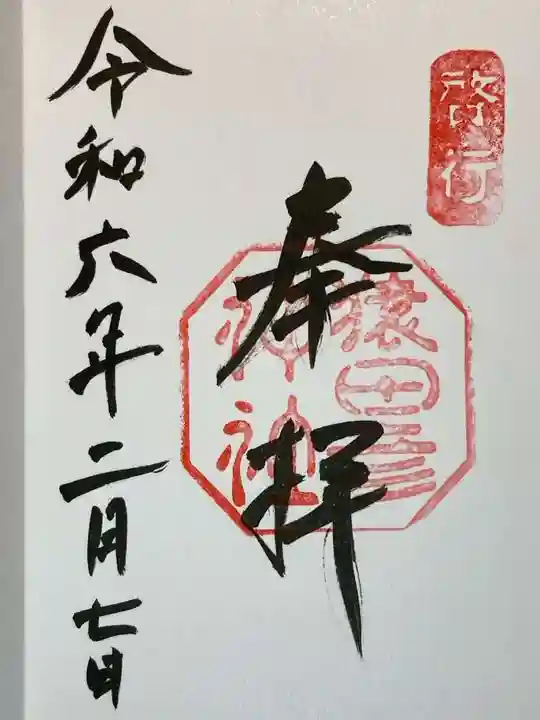 啓行
奉拝
猿田彦
神社
令和六年二月七日